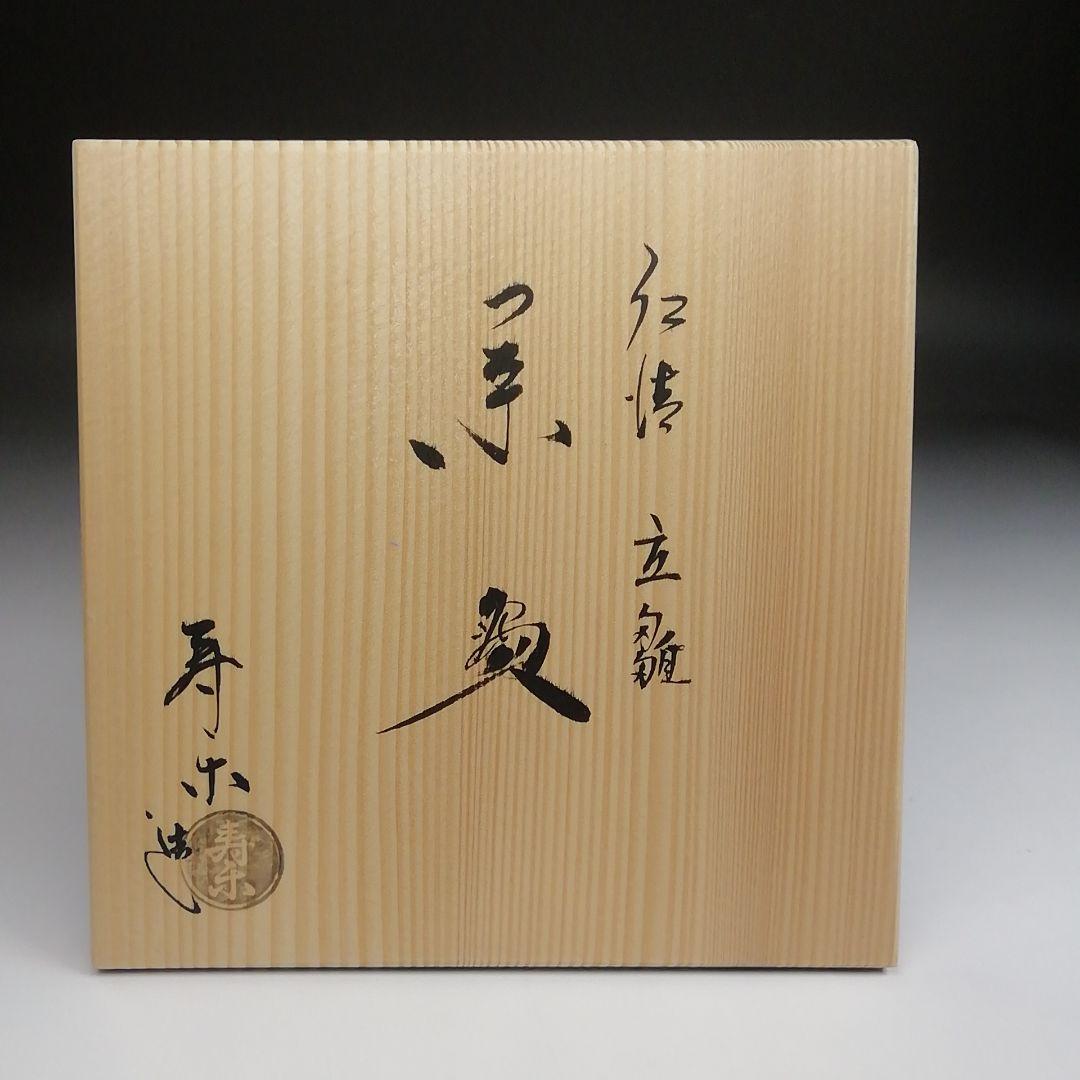 仁清 立雛
茶碗
寿楽造
寿楽